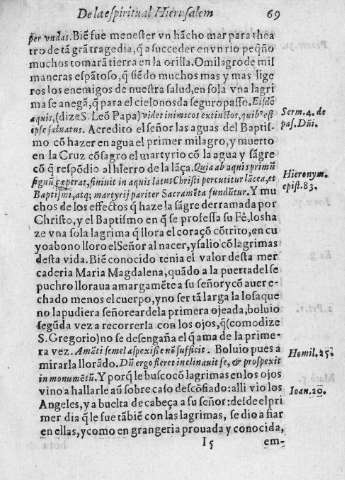 De la espiritual Hierusalem 69
per vndas. Biẽ fue menester vn hàcho mar para thea
tro de tã grã tragedia, q̃ a succeder en vn rio peq̃ño
muchos tomarã tierra en la orilla. O milagro de mil
maneras espãtoso, q̃ siẽdo muchos mas y mas lige
ros los enemigos de nuestra salud, en sola vna lagri
ma se anegã, q̃ para el cielo nos da seguro passo. Eisdõ
aquis, (dize S. Leõ Papa) videt inimicos extinctos, quib᷒ est
ipse saluatus. Acredito el señor las aguas del Baptis-
mo cõ hazer en agua el primer milagro, y muerto
en la Cruz cõsagro el martyrio cõ la agua y sãgre
cõ q̃ respõdio al hierro de la lãça. Quia ab aquis primũ
signũ cœperat, finiuit in aquis latus Christi percutitur lãcea, et
Baptismi, atq; martyrij pariter Sacramẽta fundũtur. Y mu
chos de los effectos q̃ haze la sãgre derramada por
Christo, y el Baptismo en q̃ se professa su Fè, los ha
ze vna sola lagrima q̃ llora el coraçõ cõtrito, en cu
yo abono lloro el Señor al nacer, y salio cõ lagrimas
desta vida. Biẽ conocido tenia el valor desta mer
caderia Maria Magdalena, quãdo a la puerta del se
puchro lloraua amargamẽte a su señor y cõ auer e-
chado menos el cuerpo, y no ser tã larga la losa que
no la pudiera señorear de la primera ojeada, boluio
segũda vez a recorrerla con los ojos, q̃ (como dize
S. Gregorio) no se desengaña el q̃ ama de la prime
ra vez. Amãti semel aspexisse nõ sufficit. Boluio pues a
mirarla llorãdo. Dũ ergo fleret inclinauit se, & prospexit
in monumẽtũ. Y porq̃ le buscocõ lagrimas en los ojos
vino a hallarle aũ sobre caso descõfiado: alli vio los
Angeles, y a buelta de cabeça a su señor: desde el pri
mer dia q̃ le fue tãbiẽ con las lagrimas, se dio a fiar
en ellas, y como en grangeria prouada y conocida,
I 5 em-
Serm. 4. de
pas. Dñi.
Hieronym.
epist. 83.
Homil. 25.
Ioan. 20.